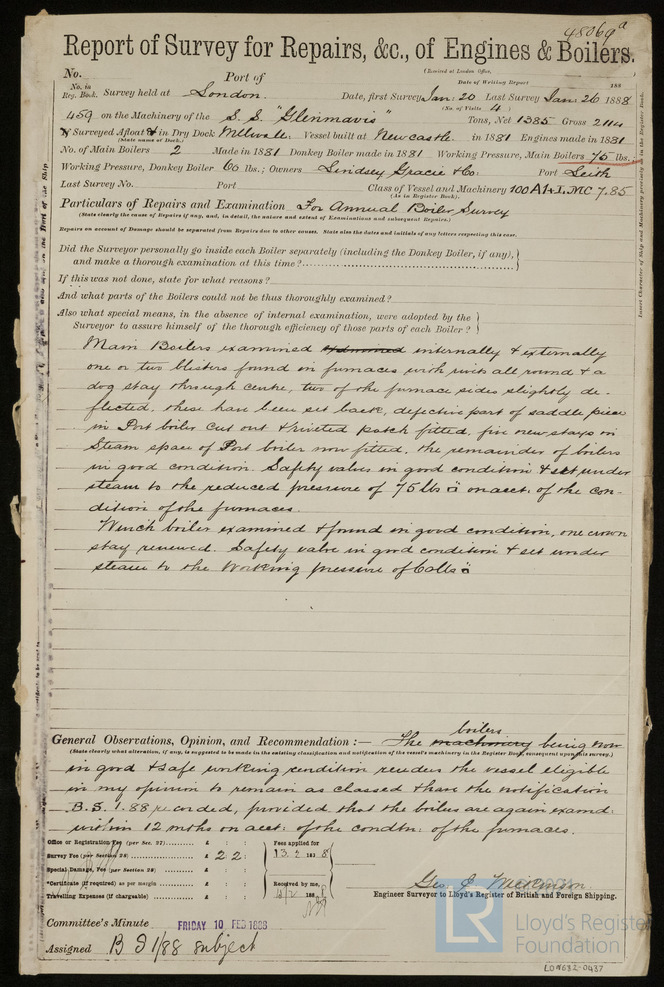 48069a
Report of Survey for Repairs, &c., of Engines & Boilers.
(Received at London Office,
No. Port of Date of Writing Report 188
No. in Reg. Book. Survey held at London. Date, first Survey Jan: 20 Last Survey Jan: 26 1888
(No. of Visits 4)
459 on the Machinery of the S.S. "Glenmavis" Tons, Net 1385 Gross 2114
Surveyed Afloat & in Dry Dock Millwall. Vessel built at Newcastle. in 1881 Engines made in 1881
(State name of Dock.)
No. of Main Boilers 2 Made in 1881 Donkey Boiler made in 1881 Working Pressure, Main Boilers 75 lbs.
Working Pressure, Donkey Boiler 60 lbs.; Owners Lindsey Gracie & Co. Port Leith
Last Survey No. Port Class of Vessel and Machinery 100A1 & L.M.C 7.85
(As in Register Book).
Particulars of Repairs and Examination For Annual Boiler Survey
(State clearly the cause of Repairs if any, and, in detail, the nature and extent of Examinations and subsequent Repairs.)
Repairs on account of Damage should be separated from Repairs due to other causes. State also the dates and initials of any letters respecting this case.
Did the Surveyor personally go inside each Boiler separately (including the Donkey Boiler, if any),
and make a thorough examination at this time?
If this was not done, state for what reasons?
And what parts of the Boilers could not be thus thoroughly examined?
Also what special means, in the absence of internal examination, were adopted by the
Surveyor to assure himself of the thorough efficiency of those parts of each Boiler?
Main Boilers examined examined internally & externally
one or two blisters found in furnaces with nuts all round & a
dog stay through centre, two of the furnace sides slightly de-
flected, these have been set back, defective part of saddle piece
in Port boiler cut out & riveted patch fitted, five new stays in
Steam space of Port boiler now fitted, the remainder of boilers
in good condition. Safety valves in good condition & set under
steam to the reduced pressure of 75 lbs □" on acct. of the con-
dition of the furnaces.
Winch boiler examined & found in good condition, one crown
stay renewed. Safety valve in good condition & set under
steam to the working pressure of 60 lbs □"
General Observations, Opinion, and Recommendation :— The machinery boilers being now
(State clearly what alteration, if any, is suggested to be made in the existing classification and notification of the vessel's machinery in the Register Book, subsequent upon this survey.)
in good & safe working condition renders the vessel eligible
in my opinion to remain as classed & have the notification
B.S. 1.88 recorded, provided that the boilers are again examd.
within 12 mths on acct: of the condtn: of the furnaces.
Office or Registration Fee (per Sec. 27) £ : :
Survey Fee (per Section 28) £ 2 2 :
Special Damage, Fee (per Section 28) £ : :
*Certificate (if required) as per margin £ : :
Travelling Expenses (if chargeable) £ : :
Fees applied for
188
Received by me,
188
Geo. J. Wilkinson
Engineer Surveyor to Lloyd's Register of British and Foreign Shipping.
Committee's Minute FRIDAY 10 FEB 1888
Assigned B S 1/88 subject
LR
Lloyd's Register
Foundation
LON632-0437
Insert Character of Ship and Machinery precisely as in the Register Book.